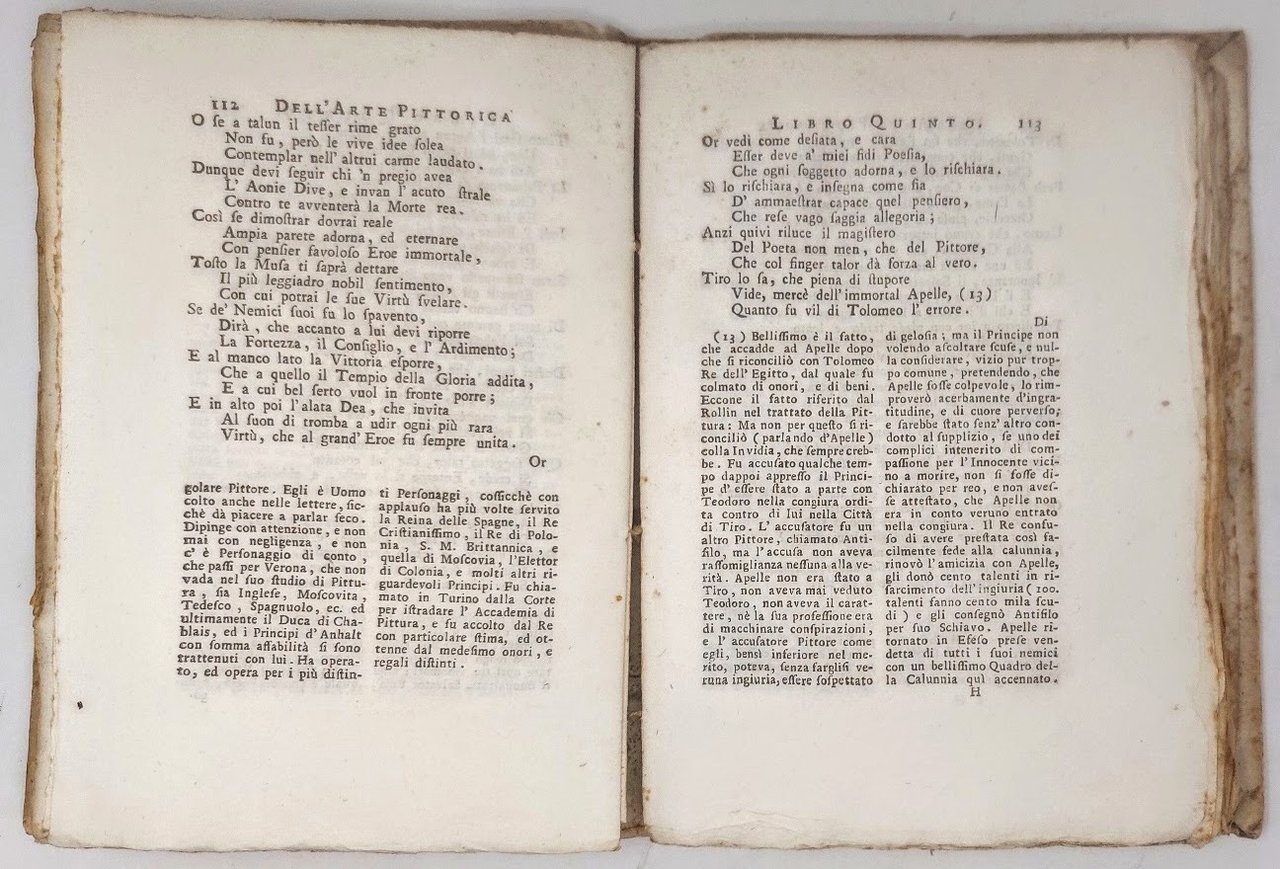 112 DELL'ARTE PITTORICA
O ſe a talun il teſſer rime grato
Non fu, però le vive idee ſolea
Contemplar nell' altrui carme laudato.
Dunque devi ſeguir chi 'n pregio avea
L' Aonie Dive, e invan l' acuto ſtrale
Contro te avventerà la Morte rea.
Così ſe dimoſtrar dovrai reale
Ampia parete adorna, ed eternare
Con penſier favoloſo Eroe immortale,
Toſto la Muſa ti ſaprà dettare
Il più leggiadro nobil ſentimento,
Con cui potrai le ſue Virtù ſvelare.
Se de' Nemici ſuoi fu lo ſpavento,
Dirà, che accanto a lui devi riporre
La Fortezza, il Conſiglio, e l' Ardimento;
E al manco lato la Vittoria eſporre,
Che a quello il Tempio della Gloria addita,
E a cui bel ſerto vuol in fronte porre;
E in alto poi l' alata Dea, che invita
Al ſuon di tromba a udir ogni più rara
Virtù, che al grand' Eroe fu ſempre unita.
Or
golare Pittore. Egli è Uomo
colto anche nelle lettere, ſic-
chè dà piacere a parlar ſeco.
Dipinge con attenzione, e non
mai con negligenza, e non
c' è Perſonaggio di conto,
che paſſi per Verona, che non
vada nel ſuo ſtudio di Pittu-
ra, ſia Ingleſe, Moſcovita,
Tedeſco, Spagnuolo, ec. ed
ultimamente il Duca di Cha-
blais, ed i Principi d' Anhalt
con ſomma affabilità ſi ſono
trattenuti con lui. Ha opera-
to, ed opera per i più diſtin-
ti Perſonaggi, coſicchè con
applauſo ha più volte ſervito
la Reina delle Spagne, il Re
Criſtianiſſimo, il Re di Polo-
nia, S. M. Brittannica, e
quella di Moſcovia, l'Elettor
di Colonia, e molti altri ri-
guardevoli Principi. Fu chia-
mato in Turino dalla Corte
per iſtradare l' Accademia di
Pittura, e fu accolto dal Re
con particolare ſtima, ed ot-
tenne dal medeſimo onori, e
regali diſtinti.
LIBRO QUINTO. 113
Or vedi come deſiata, e cara
Eſſer deve a' miei fidi Poeſia,
Che ogni ſoggetto adorna, e lo riſchiara.
Sì lo riſchiara, e inſegna come ſia
D' ammaeſtrar capace quel penſiero,
Che reſe vago ſaggia allegoria;
Anzi quivi riluce il magiſtero
Del Poeta non men, che del Pittore,
Che col finger talor dà forza al vero.
Tiro lo ſa, che piena di ſtupore
Vide, mercè dell' immortal Apelle, (13)
Quanto fu vil di Tolomeo l' errore.
Di
(13) Belliſſimo è il fatto,
che accadde ad Apelle dopo
che ſi riconciliò con Tolomeo
Re dell' Egitto, dal quale fu
colmato di onori, e di beni.
Eccone il fatto riferito dal
Rollin nel trattato della Pit-
tura: Ma non per queſto ſi ri-
conciliò (parlando d'Apelle)
colla Invidia, che ſempre creb-
be. Fu accuſato qualche tem-
po dappoi appreſſo il Princi-
pe d' eſſere ſtato a parte con
Teodoro nella congiura ordi-
ta contro di lui nella Città
di Tiro. L' accuſatore fu un
altro Pittore, chiamato Anti-
filo, ma l' accuſa non aveva
raſſomiglianza neſſuna alla ve-
rità. Apelle non era ſtato a
Tiro, non aveva mai veduto
Teodoro, non aveva il carat-
tere, nè la ſua profeſſione era
di macchinare conſpirazioni,
e l' accuſatore Pittore come
egli, bensì inferiore nel me-
rito, poteva, ſenza fargliſi ve-
runa ingiuria, eſſere ſoſpettato
di geloſia; ma il Principe non
volendo aſcoltare ſcuſe, e nul-
la conſiderare, vizio pur trop-
po comune, pretendendo, che
Apelle foſſe colpevole, lo rim-
proverò acerbamente d'ingra-
titudine, e di cuore perverſo;
e ſarebbe ſtato ſenz' altro con-
dotto al ſupplizio, ſe uno dei
complici intenerito di com-
paſſione per l' Innocente vici-
no a morire, non ſi foſſe di-
chiarato per reo, e non aveſ-
ſe atteſtato, che Apelle non
era in conto veruno entrato
nella congiura. Il Re confu-
ſo di avere preſtata così fa-
cilmente fede alla calunnia,
rinovò l' amicizia con Apelle,
gli donò cento talenti in ri-
ſarcimento dell' ingiuria (100.
talenti fanno cento mila ſcu-
di) e gli conſegnò Antifilo
per ſuo Schiavo. Apelle ri-
tornato in Efeſo preſe ven-
detta di tutti i ſuoi nemici
con un belliſſimo Quadro del-
la Calunnia quì accennato.
H